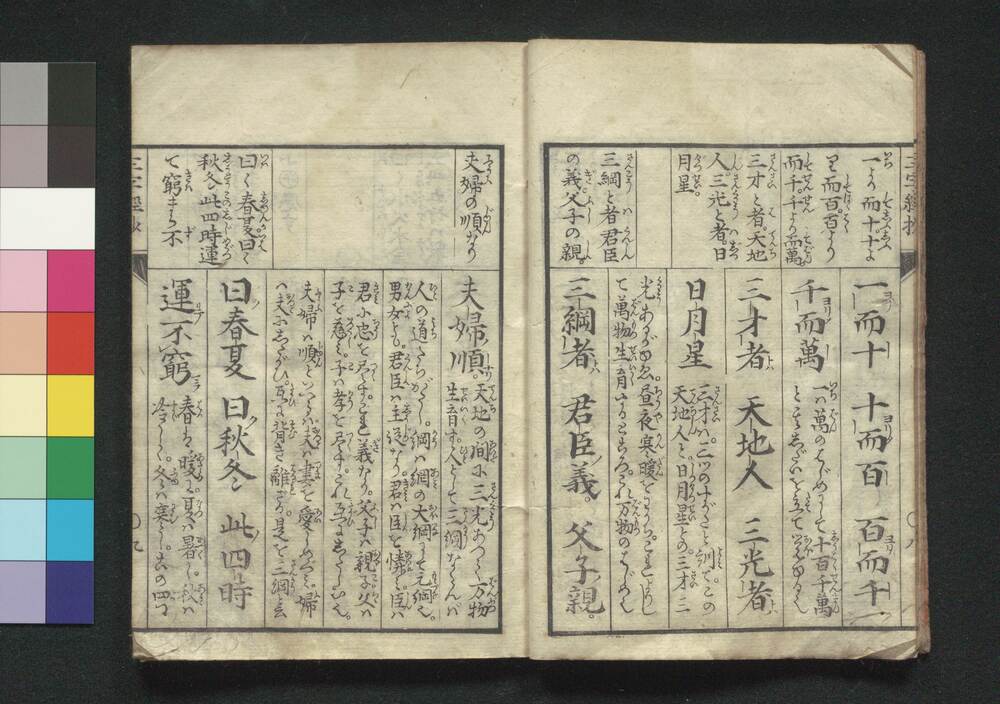 一より而十十よ
り而百百より
而千千より而萬
三才と者天地
人三光と者日
月星
三綱と者君臣
の義父子の親
一而十 十而百 百而千
千而萬
一ハ萬のはじめにして十百千萬
三才者 天地人 三光者
日月星
三才ハ三ツのはたらきと訓ず この
天地人と日月星との三才三
光あるがゆゑ昼夜寒暖を
て萬物生育す
三綱者 君臣義 父子親
夫婦の順なり
曰く春夏曰く
秋冬此四時運
て窮まら不
夫婦順
天地の間に三光あつて万物
生育す人として三綱なくんバ
人の道たちがたし 綱ハ網の大綱にて元綱也
男女とも君臣ハ主従なり 君ハ臣を憐し臣ハ
君に忠を尽すこれ義なり 父子ハ親子父ハ
子を慈み子ハ孝を尽す
夫婦ハ順といふハ夫ハ妻を愛し 婦
ハ夫にしたがひ互に背き離ず 是を三綱と云
曰春夏 曰秋冬 此四時
運不窮
春は暖に夏ハ暑し秋ハ
冷しく冬ハ寒し この四ツ
三字經抄
○八
○九